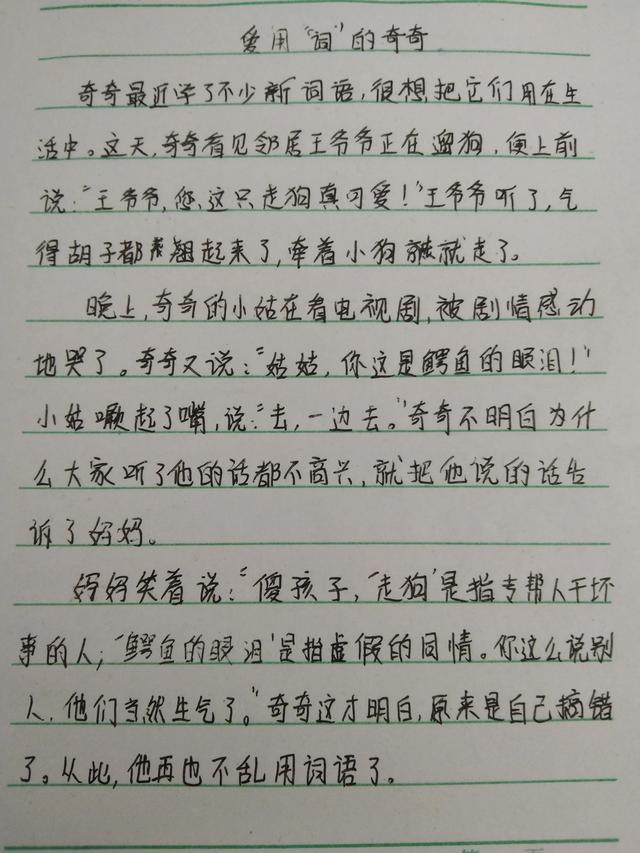 爱用“词”的奇奇
奇奇最近学了不少新词语,很想把它们用在生
活中。这天,奇奇看见邻居王爷爷正在遛狗,便上前
说:“王爷爷,您这只走狗真可爱!”王爷爷听了,气
得胡子都翘起来了,牵着小狗就走了。
晚上,奇奇的小姑在看电视剧,被剧情感动
地哭了。奇奇又说:“姑姑,你这是鳄鱼的眼泪!”
小姑噘起了嘴,说:“去,一边去。”奇奇不明白为什
么大家听了他的话都不高兴,就把他说的话告
诉了妈妈。
妈妈笑着说:“傻孩子,‘走狗’是指专帮人干坏
事的人;‘鳄鱼的眼泪’是指虚假的同情。你这么说别
人,他们当然生气了。”奇奇这才明白,原来是自己搞错
了。从此,他再也不乱用词语了。